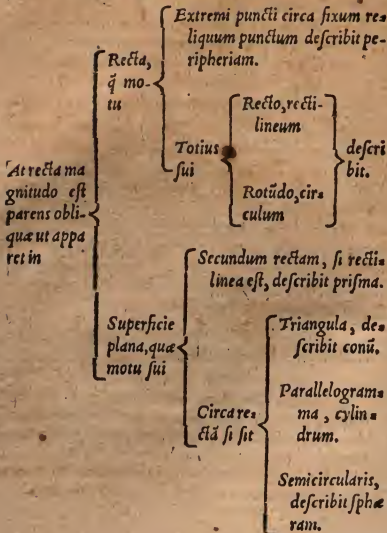 At recta ma
gnitudo est
parens obli-
quæ ut appa
ret in
Recta,
q̃ mo-
tu
Extremi puncti circa fixum re=
liquum punctum describit pe-
ripheriam.
Totius
sui
Recto, recti-
lineum
Rotũdo, cir=
culum
descri
bit.
Superficie
plana, quæ
motu sui
Secundum rectam, si recti=
linea est, describit prisma.
Circa re=
ctã si sit
Triangula, de=
scribit conũ.
Parallelogram=
ma, cylin=
drum.
Semicircularis,
describit sphæ
ram.